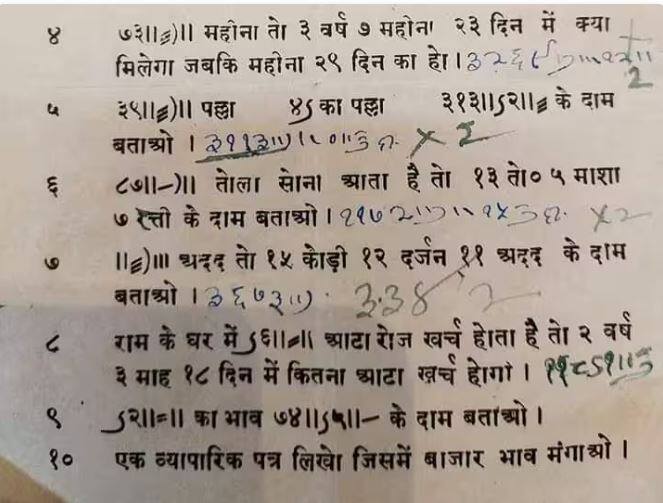 ४ ७३॥≡)॥ महीना तो ३ वर्ष ७ महीना २३ दिन में क्या
मिलेगा जबकि महीना २९ दिन का हो ।
५ ३९॥≡)॥ पल्ला ४ऽ का पल्ला ३१३॥ऽ२॥≡ के दाम
बताओ ।
६ ८७॥-)॥ तोला सोना आता है तो १३ तो० ५ माशा
७ रत्ती के दाम बताओ । ×2
७ ॥≡)॥। अदद तो १५ कोड़ी १२ दर्जन ११ अदद के दाम
बताओ । ३६७३॥)
८ राम के घर में ऽ६॥=॥ आटा रोज खर्च होता है तो २ वर्ष
३ माह १८ दिन में कितना आटा खर्च होगा ।
९ ऽ२॥=॥ का भाव ७४॥ऽ५॥- के दाम बताओ ।
१० एक व्यापारिक पत्र लिखो जिसमें बाजार भाव मंगाओ ।